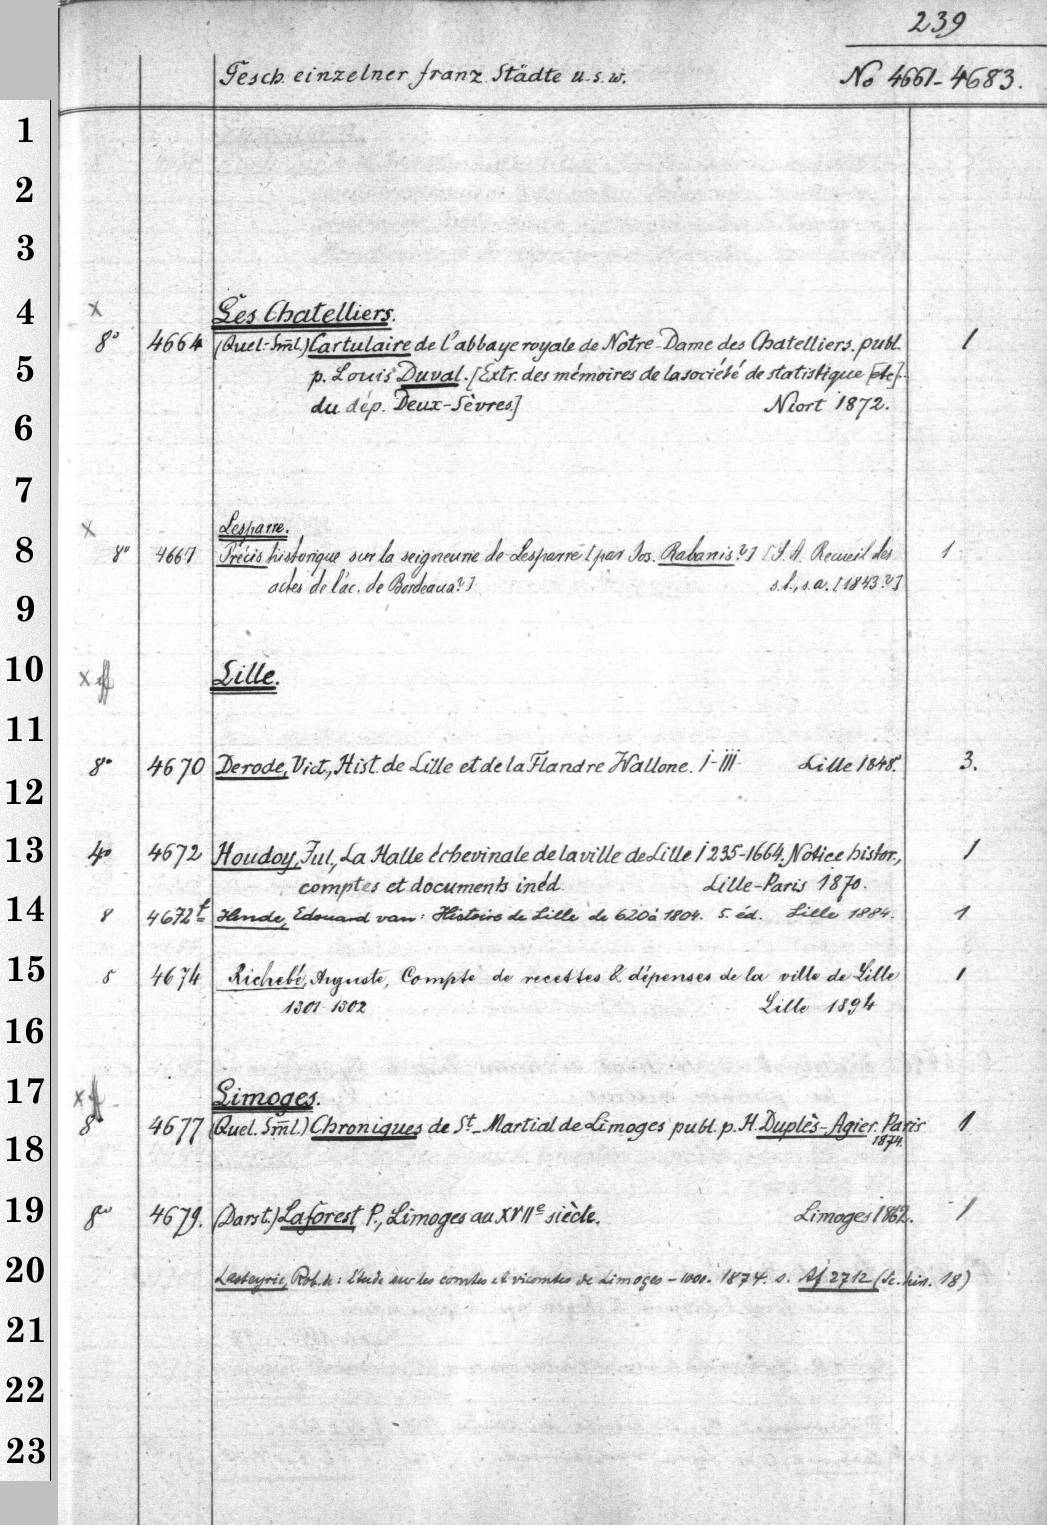 239
Gesch. einzelner franz. Städte u. s. w. No 4661-4683.
1
2
3
4 x Les Chatelliers.
8° 4664 (Quel.-Sml.) Cartulaire de l'abbaye royale de Notre-Dame des Chatelliers. publ. 1
5 p. Louis Duval. [Extr. des mémoires de la société de statistique [etc]..
6 du dép. Deux-Sèvres] Niort 1872.
7
x Lesparre.
8 8° 4667 Précis historique sur la seigneurie de Lesparre [par Jos. Rabanis?] [S. A. Recueil des 1
9 actes de l'ac. de Bordeaux?] s. l., s. a. [1843?]
10 x Lille.
11
8° 4670 Derode, Vict., Hist. de Lille et de la Flandre Wallone. I-III Lille 1848. 3.
12
13 4° 4672 Houdoy, Jul., La Halle échevinale de la ville de Lille 1235-1664. Notice histor., 1
comptes et documents inéd. Lille-Paris 1870.
14 8 4672 Hende, Edouard van: Histoire de Lille de 620 à 1804. 5. éd. Lille 1884. 1
15 8 4674 Richebé, Auguste, Compte de recettes & dépenses de la ville de Lille 1
1301-1302 Lille 1894
16
17 x Limoges.
8° 4677 (Quel. Sml.) Chroniques de St-Martial de Limoges publ. p. H. Duplès-Agier. Paris 1
18 1874.
19 8° 4679. (Darst.) Laforest P., Limoges au XVIIe siècle. Limoges 1862. 1
20 Lasteyrie, Rob. de: Etude sur les comtes et vicomtes de Limoges - 1000. 1874. s. Af 2712 (Sc. hist. 18)
21
22
23